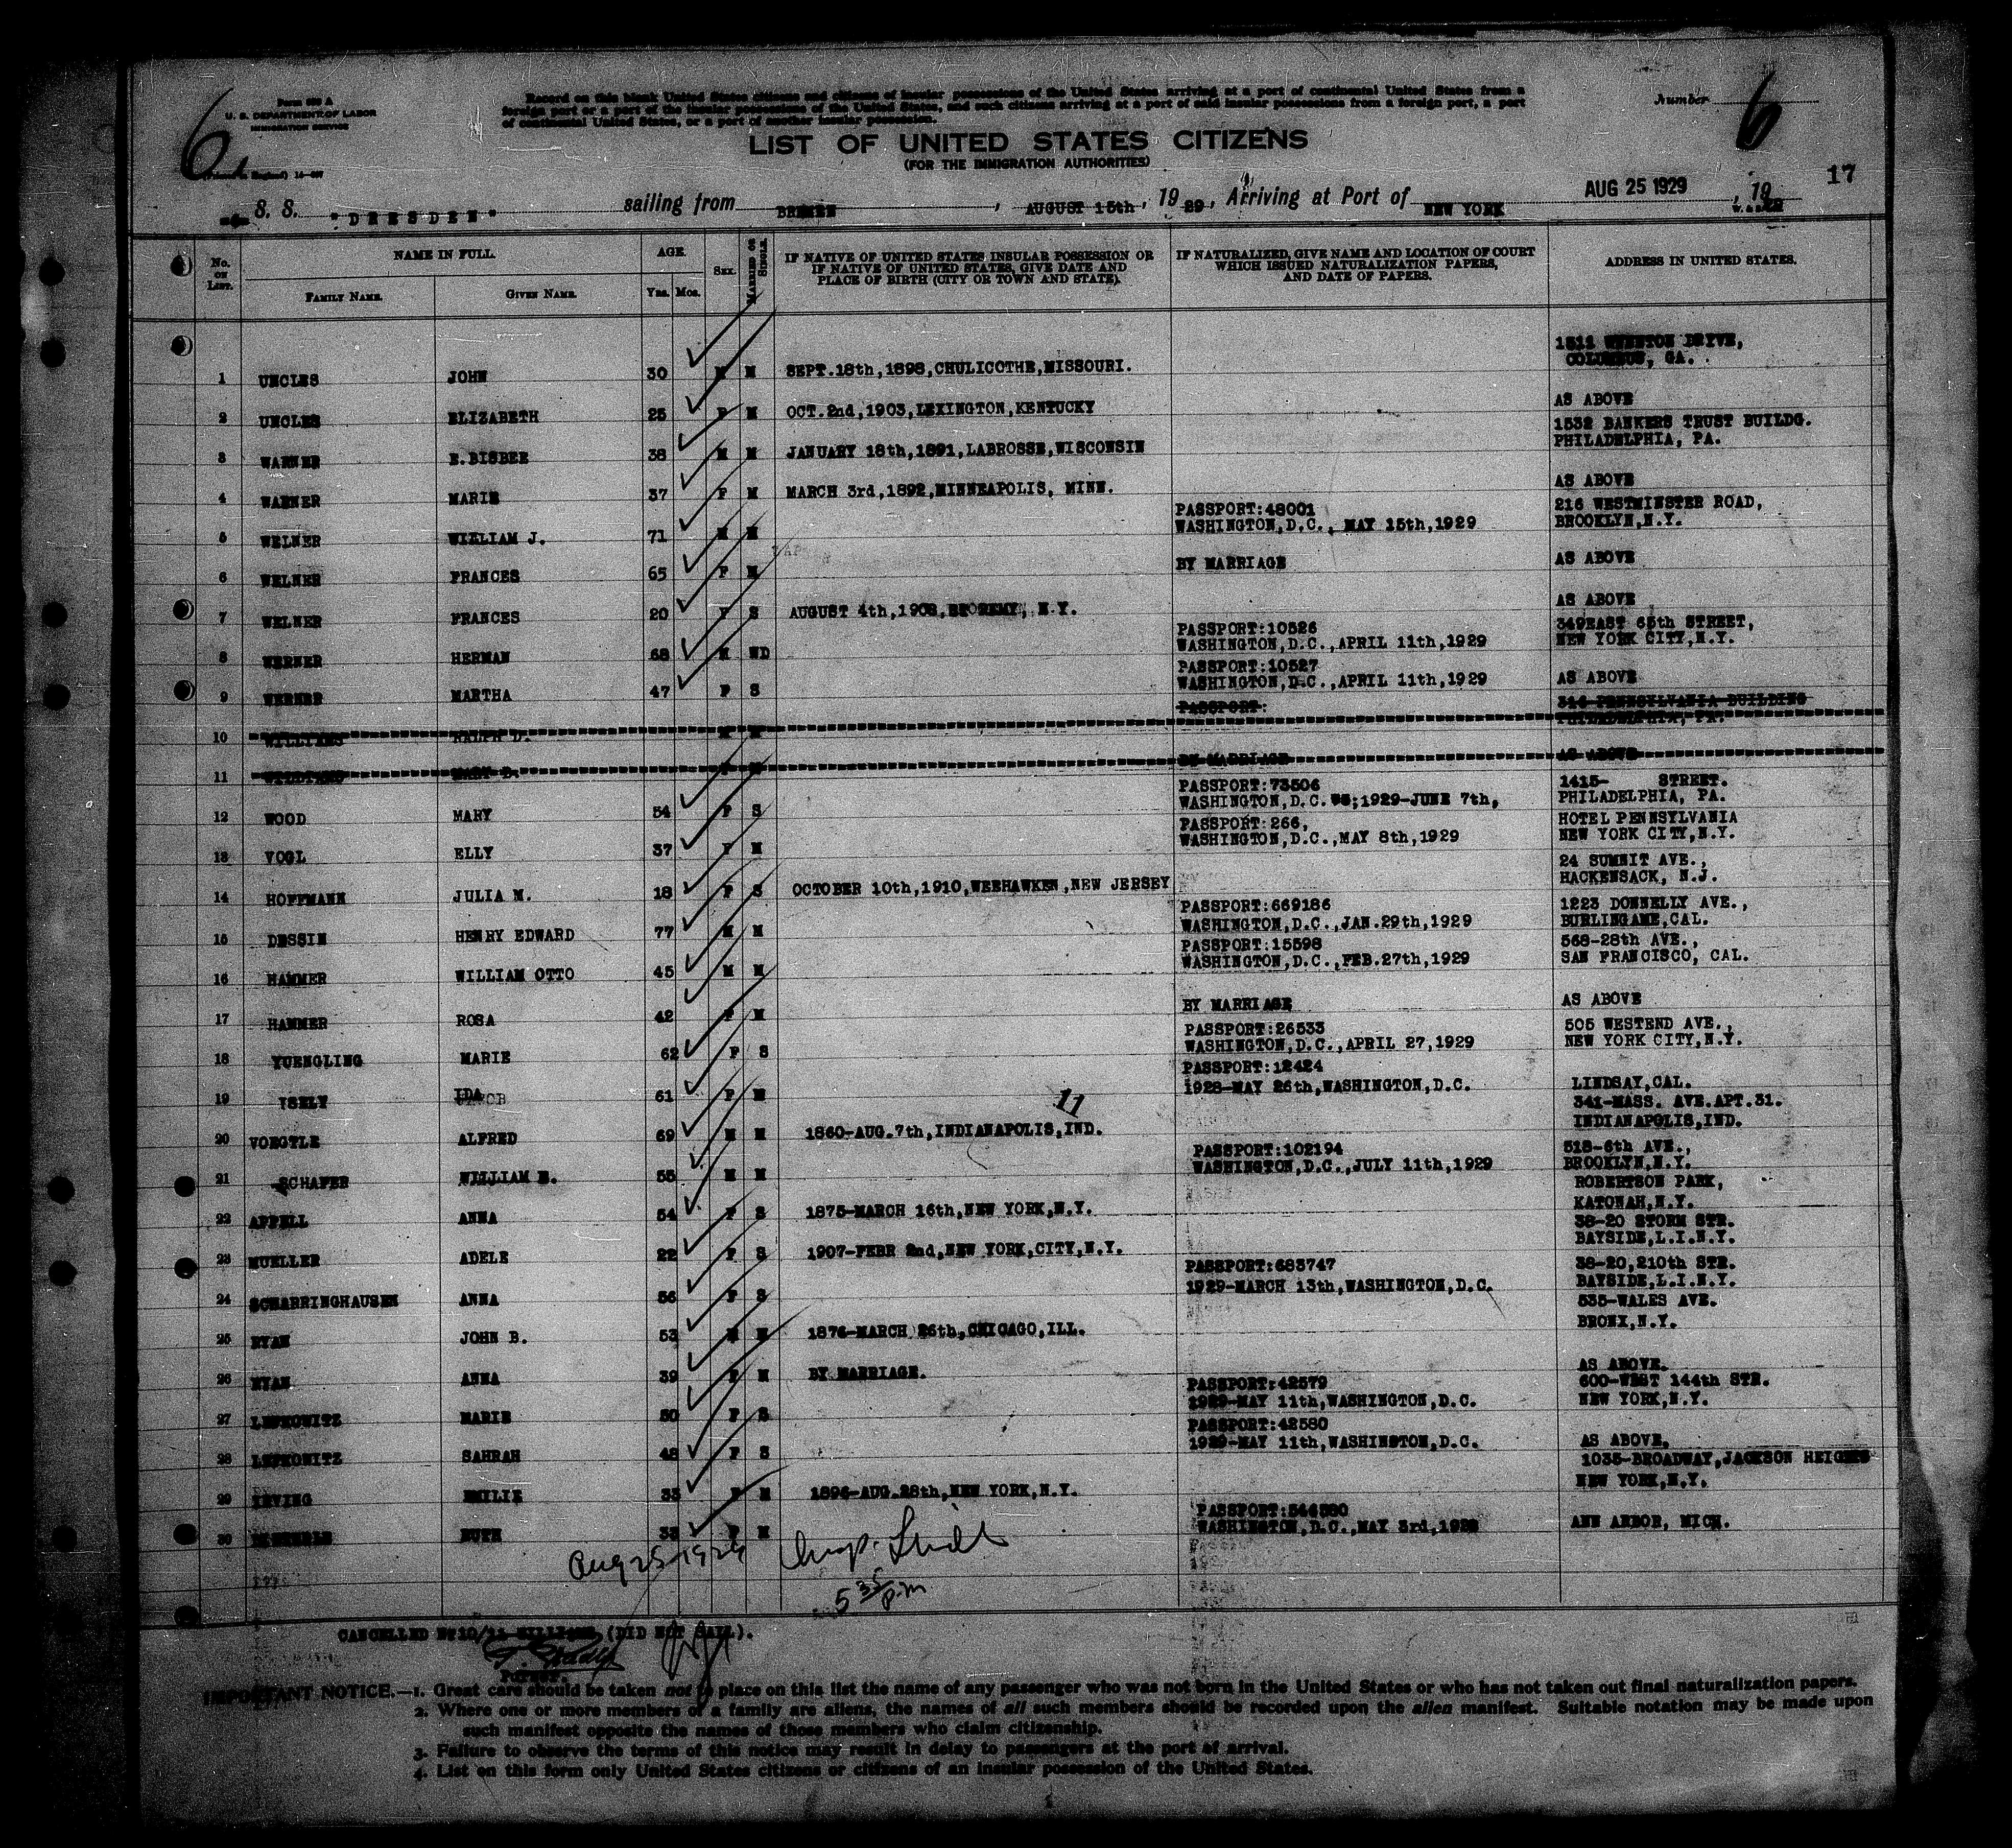 Form 630 A
U. S. DEPARTMENT OF LABOR
IMMIGRATION SERVICE
Record on this blank United States citizens and citizens of insular possessions of the United States arriving at a port of continental United States from a
foreign port or a port of the insular possessions of the United States, and such citizens arriving at a port of said insular possessions from a foreign port, a port
of continental United States, or a port of another insular possession.
Number 6
6
LIST OF UNITED STATES CITIZENS
(FOR THE IMMIGRATION AUTHORITIES)
17
S. S. "DRESDEN" sailing from BREMEN, AUGUST 15th, 1929, Arriving at Port of NEW YORK AUG 25 1929, 19
No. ON LIST. NAME IN FULL. AGE. SEX. MARRIED OR SINGLE. IF NATIVE OF UNITED STATES INSULAR POSSESSION OR IF NATIVE OF UNITED STATES, GIVE DATE AND PLACE OF BIRTH (CITY OR TOWN AND STATE). IF NATURALIZED, GIVE NAME AND LOCATION OF COURT WHICH ISSUED NATURALIZATION PAPERS, AND DATE OF PAPERS. ADDRESS IN UNITED STATES.
FAMILY NAME. GIVEN NAME. YRS. MOS.
1 UNCLES JOHN 30 M M SEPT.18th,1898,CHULICOTHE,MISSOURI. 1511 WYENTON DRIVE, COLUMBUS, GA.
2 UNCLES ELIZABETH 25 F M OCT.2nd,1903,LEXINGTON,KENTUCKY AS ABOVE
3 WARNER E.BISBEE 38 M M JANUARY 18th,1891,LABROSSE,WISCONSIN 1532 BANKERS TRUST BUILDG. PHILADELPHIA, PA.
4 WARNER MARIE 37 F M MARCH 3rd,1892,MINNEAPOLIS, MINN. AS ABOVE
5 WELNER WILLIAM J. 71 M M PASSPORT:48001 WASHINGTON,D.C., MAY 15th,1929 216 WESTMINSTER ROAD, BROOKLYN,N.Y.
6 WELNER FRANCES 65 F M BY MARRIAGE AS ABOVE
7 WELNER FRANCES 20 F S AUGUST 4th,1908, N.Y. AS ABOVE
8 WERNER HERMAN 68 M WD PASSPORT:10526 WASHINGTON,D.C.,APRIL 11th,1929 349EAST 65th STREET, NEW YORK CITY,N.Y.
9 WERNER MARTHA 47 F S PASSPORT:10527 WASHINGTON,D.C.,APRIL 11th,1929 AS ABOVE
10 WILLIAMS RALPH D. M M PASSPORT: 316 PENNSYLVANIA BUILDING PHILADELPHIA, PA.
11 WILLIAMS MARY D. BY MARRIAGE AS ABOVE
12 WOOD MARY 54 F S PASSPORT:73506 WASHINGTON,D.C. ;1929-JUNE 7th, 1415- STREET. PHILADELPHIA, PA.
13 VOGL ELLY 37 F M PASSPORT:266, WASHINGTON,D.C.,MAY 8th,1929 HOTEL PENNSYLVANIA NEW YORK CITY,N.Y.
14 HOFFMANN JULIA M. 18 F S OCTOBER 10th,1910,WEEHAWKEN,NEW JERSEY 24 SUMNIT AVE., HACKENSACK, N.J.
15 DESSIN HENRY EDWARD 77 M M PASSPORT:669186 WASHINGTON,D.C.,JAN.29th,1929 1223 DONNELLY AVE., BURLINGAME,CAL.
16 HAMMER WILLIAM OTTO 45 M M PASSPORT:15598 WASHINGTON,D.C.,FEB.27th,1929 568-28th AVE., SAN FRANCISCO, CAL.
17 HAMMER ROSA 42 F M BY MARRIAGE AS ABOVE
18 YUENGLING MARIE 62 F S PASSPORT:26533 WASHINGTON,D.C.,APRIL 27,1929 505 WESTEND AVE., NEW YORK CITY,N.Y.
19 ISELY IDA 61 F M PASSPORT:12424 1928-MAY 26th,WASHINGTON,D.C. LINDSAY,CAL.
11
20 VOEGTLE ALFRED 69 M M 1860-AUG.7th,INDIANAPOLIS,IND. 341-MASS. AVE.APT.31. INDIANAPOLIS,IND.
21 SCHAFER WILLIAM E. 55 M M PASSPORT:102194 WASHINGTON,D.C.,JULY 11th,1929 518-6th AVE., BROOKLYN,N.Y.
22 APPELL ANNA 54 F S 1875-MARCH 16th,NEW YORK,N.Y. ROBERTSON PARK, KATONAH,N.Y.
23 MUELLER ADELE 22 F S 1907-FEBR 2nd,NEW YORK,CITY,N.Y. 38-20 STORM STR. BAYSIDE,L.I.N.Y.
24 SCHARRINGHAUSEN ANNA 56 F S PASSPORT:683747 1929-MARCH 13th,WASHINGTON,D.C. 38-20,210th STR. BAYSIDE,L.I.N.Y.
25 RYAN JOHN B. 53 M M 1876-MARCH 26th,CHICAGO,ILL. 535-WALES AVE. BRONX,N.Y.
26 RYAN ANNA 39 F M BY MARRIAGE. AS ABOVE.
27 LEFKOWITZ MARIE 50 F S PASSPORT:42579 1929-MAY 11th,WASHINGTON,D.C. 600-WEST 144th STR. NEW YORK,N.Y.
28 LEFKOWITZ SAHRAH 48 F S PASSPORT:42580 1929-MAY 11th,WASHINGTON,D.C. AS ABOVE.
29 IRVING EMILIE 33 F M 1896-AUG.28th,NEW YORK,N.Y. 1035-BROADWAY,JACKSON HEIGHTS NEW YORK,N.Y.
30 RUTH 33 F M PASSPORT:544380 WASHINGTON,D.C.,MAY 3rd,1928 ANN ARBOR, MICH.
Aug 25-1929 Insp.
5 35 p.m
CANCELLED Nr10/11 WILLIAMS (DID NOT SAIL).
Purser.
IMPORTANT NOTICE.—1. Great care should be taken not to place on this list the name of any passenger who was not born in the United States or who has not taken out final naturalization papers.
2. Where one or more members of a family are aliens, the names of all such members should be recorded upon the alien manifest. Suitable notation may be made upon
such manifest opposite the names of those members who claim citizenship.
3. Failure to observe the terms of this notice may result in delay to passengers at the port of arrival.
4. List on this form only United States citizens or citizens of an insular possession of the United States.